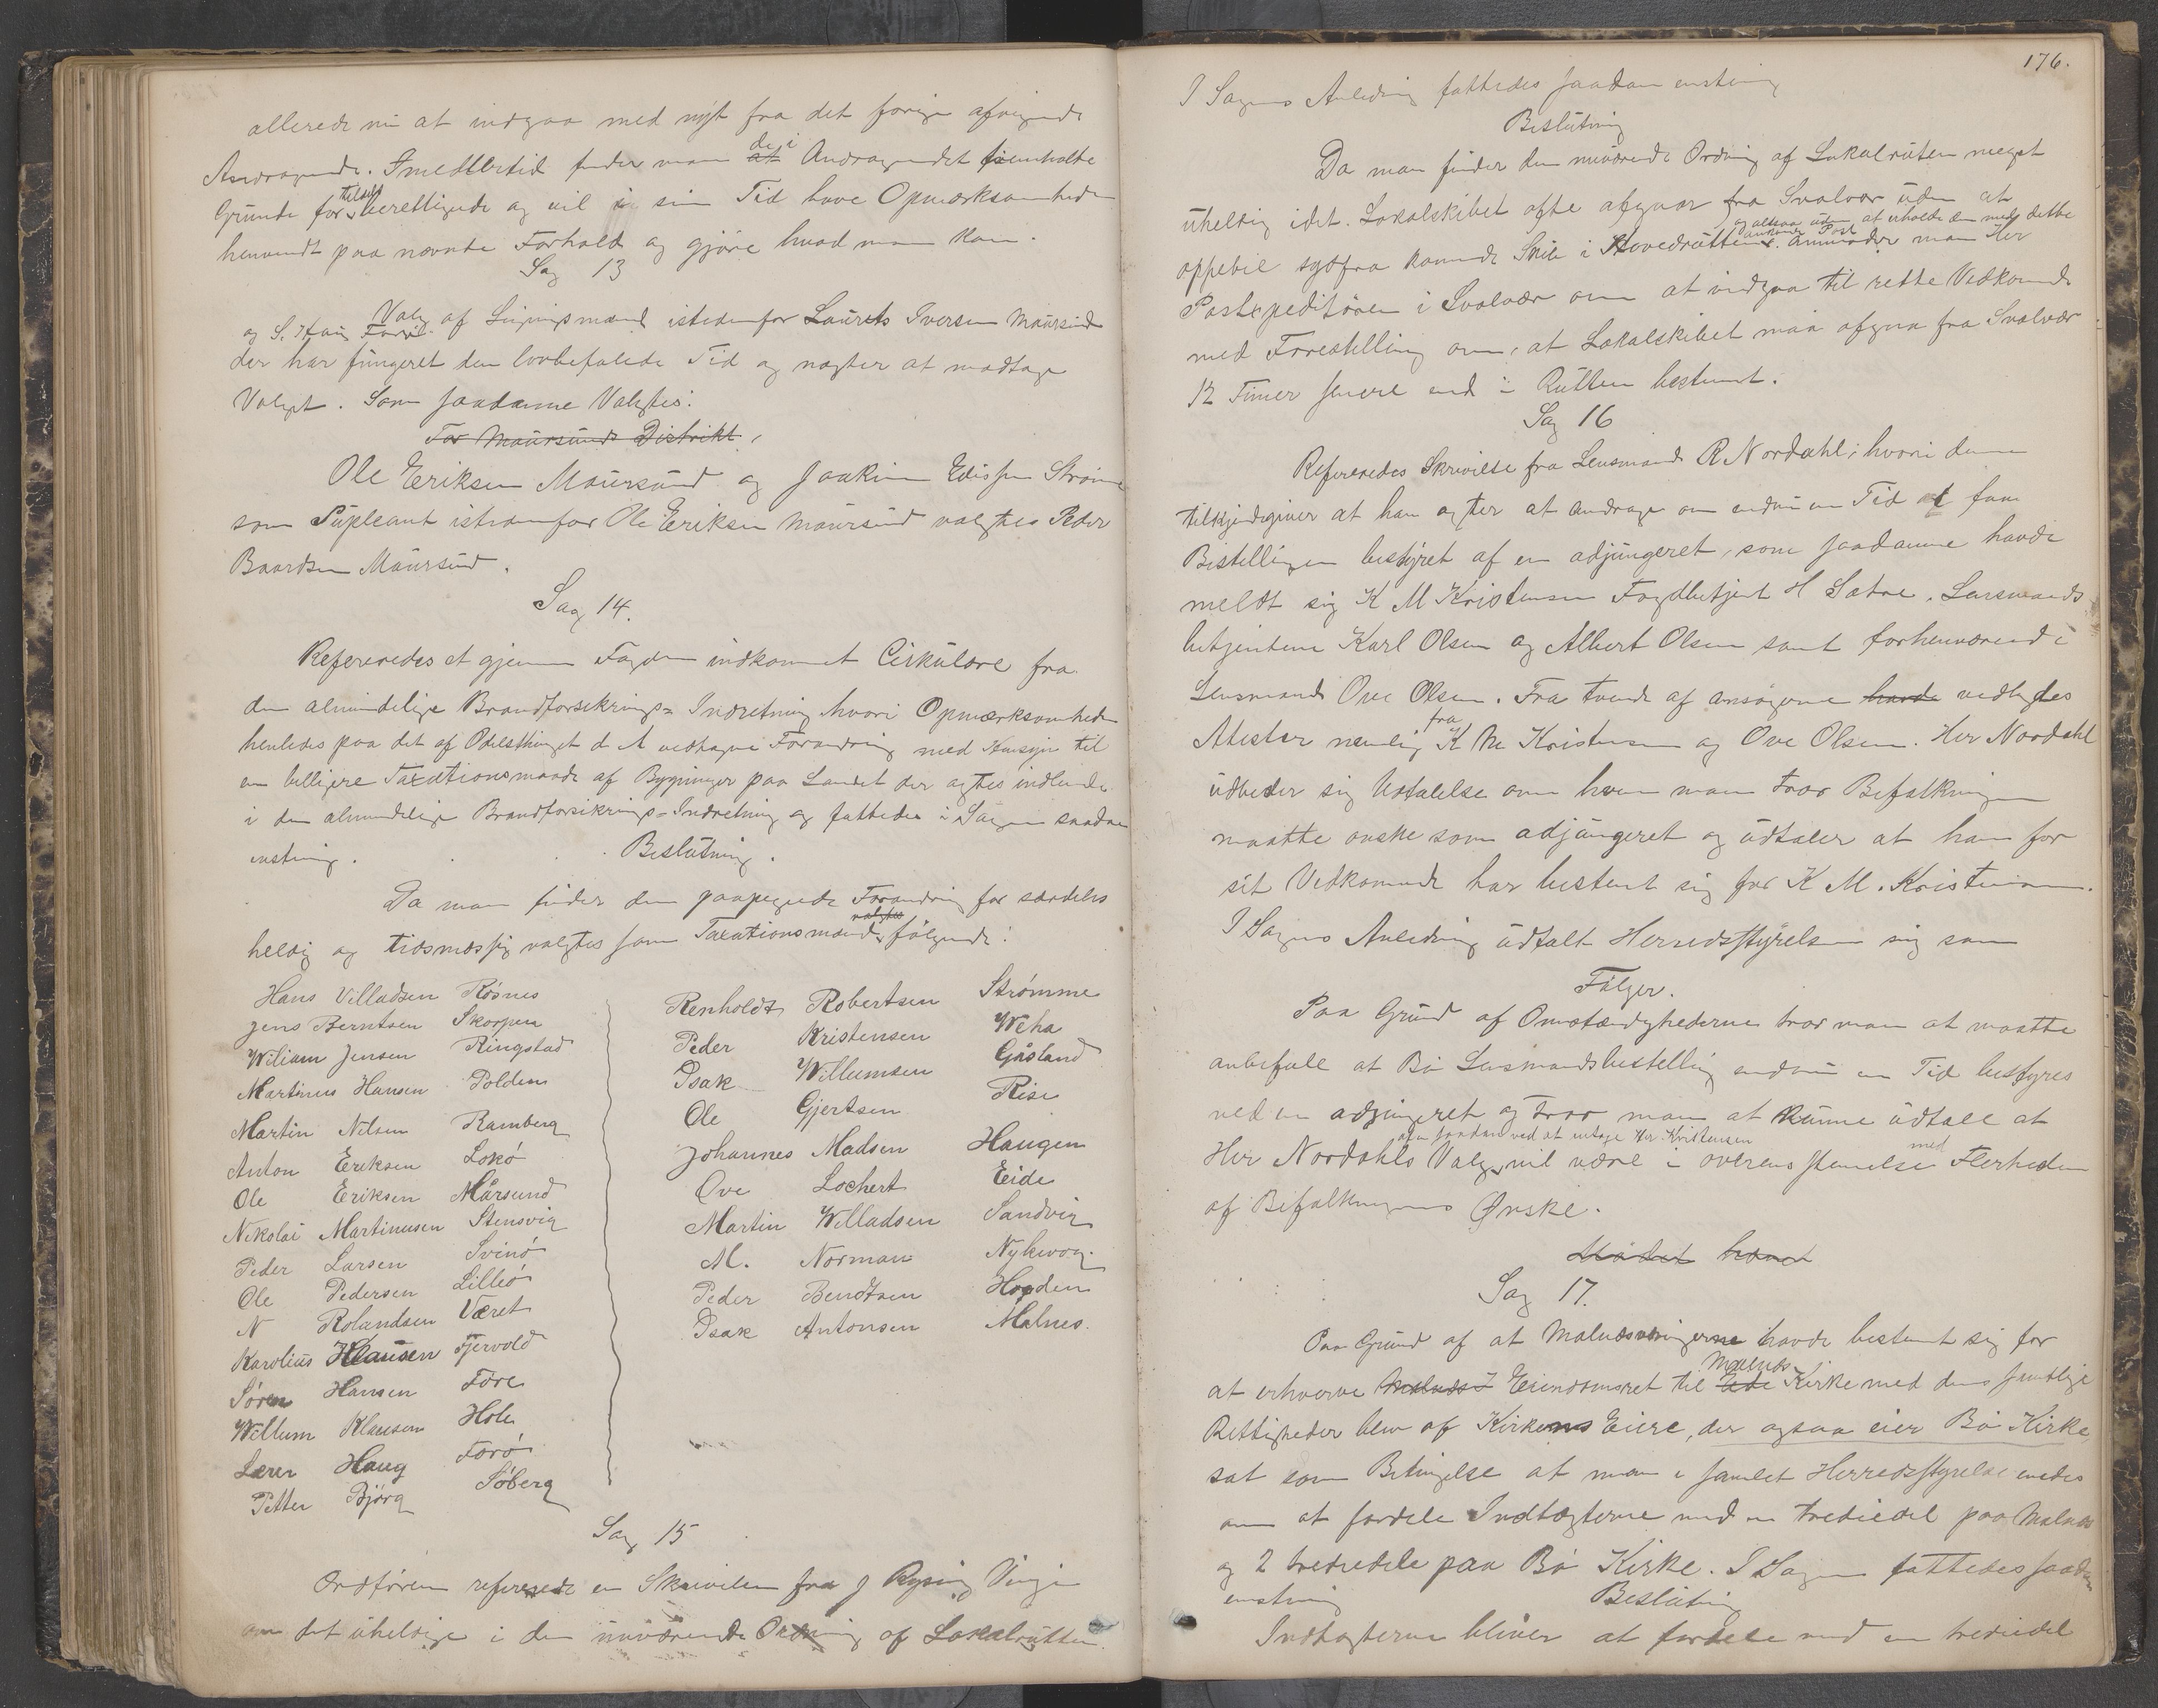 allerede nu at indgaa med nyt fra det forrige afvigende
Andragende. Imedlertid finder man de i Andragendet fremholdte
Grunde for tildels berettigede og vil i sin Tid have Opmærksomheden
henvendt paa nævnte Forhold og gjøre hvad man kan.
Sag 13
Valg af Ligningsmænd istedenfor Laurits Iversen Maursund
og S. Haug Forø
der har fungeret den lovbefalede Tid og nægter at modtage
Valget. Som saadanne Valgtes:
For Maursunds Distrikt
Ole Eriksen Maursund og Joakim Edissen Strømme
som Supleant istedenfor Ole Eriksen Maursund valgtes Peder
Baardsen Maursund.
Sag 14.
Refereredes et gjennem Fogden indkommet Cirkulære fra
den almindelige Brandforsikrings= Indretning hvori Opmærksomheden
henledes paa det af Odelsthinget d A vedtagne Forandring med Hensyn til
en billigere Taxationsmaade af Bygninger paa Landet der agtes indlemmede
i den almindelige Brandforsikrings=Indretning og fattedes i Sagen saadan
enstemmig. Beslutning.
Da man finder den paapegede Forandring for særdeles
heldig og tidsmæssig valgtes som Taxationsmænd valgtes følgende:
Hans Villadsen Røsnes
Jens Berntsen Skorpen
Wiliam Jensen Ringstad
Martinus Hansen Polden
Martin Nilsen Ramberg
Anton Eriksen Lokø
Ole Eriksen Mårsund
Nikolai Martinusen Stensvig
Peder Larsen Svinø
Ole Pedersen Lilleø
N Rolandsen Været
Karolius Klausen Fjervold
Søren Hansen Føre
Willum Klausen Hole
Lærer Haug Forø
Petter Bjørg Søberg
Renholdt Robertsen Strømme
Peder Kristensen Weha
Isak Willumsen Gåsland
Ole Gjertsen Rise
Johannes Madsen Haugen
Ove Lochert Eide
Martin Willadsen Sandvig
M. Norman Nykvog.
Peder Bendtsen Hogden
Isak Antonsen Malnes.
Sag 15
Ordføreren refererede en Skrivelse fra J Rysing Vinje
om det uheldige i den nuværende Ordning af Lokalrutten.
176.
I Sagens Anledning fattedes saadan enstemmig
Beslutning
Da man finder den nuværende Ordning af Lokalruten meget
uheldig idet Lokalskibet ofte afgaar fra Svolvær uden at
og altsaa uden at erholde den med dette
ankomne Post
oppebie sydfra kommende Skib i Hovedrutten anmoder man Her
Postexpeditøren i Svolvær om at indgaa til rette Vedkommende
med Forestilling om, at Lokalskibet maa afgaa fra Svolvær
12 Timer senere end i Rutten bestemt.
Sag 16
Refereredes Skrivelse fra Lensmand R Nordahl, hvori denne
tilkjendegiver at han agter at andrage om endnu en Tid at faa
Bestillingen bestyret af en adjungeret, som saadanne havde
meldt sig K M Kristensen Fogdbetjent H Sætre. Lensmands
betjentene Karl Olsen og Albert Olsen samt forhenværende
Lensmand Ove Olsen. Fra tvende af ansøgerne havde vedlagtes
Atester nemlig fra K M Kristensen og Ove Olsen. Her Nordahl
udbeder sig Udtalelse om hvem man tror Befolkningen
maatte ønske som adjungeret og udtaler at han for
sit Vedkomende har bestemt sig for K M. Kristensen.
I Sagens Anledning udtalte Herredsstyrelsen sig som
Følger.
Paa Grund af Omstændighederne tror man at maatte
anbefale at Bø Lensmandsbestelling endnu en Tid bestyres
ved en adjungeret og tror man at kunne udtale at
af en saadan ved at antage Her Kristensen
Her Nordahls Valg vil være i overensstemmelse med Flerheden
af Befolkningens Ønske.
Mødet hævet
Sag 17.
Paa Grund af at Malnæsværingerne havde bestemt sig for
at erhverve Malnæs Eiendomsret til Eide Malnæs Kirke med dens samtlige
Rettigheder blev af Kirkens Eiere, der ogsaa eier Bø Kirke,
sat som Betingelse at man i samlet Herredsstyrelse enedes
om at fordele Indtægterne med en trediedel paa Malnæs
og 2 trediedele paa Bø Kirke. I Sagen fattedes saadan
enstemmig Beslutning
Indtægterne bliver at fordele med en trediedel